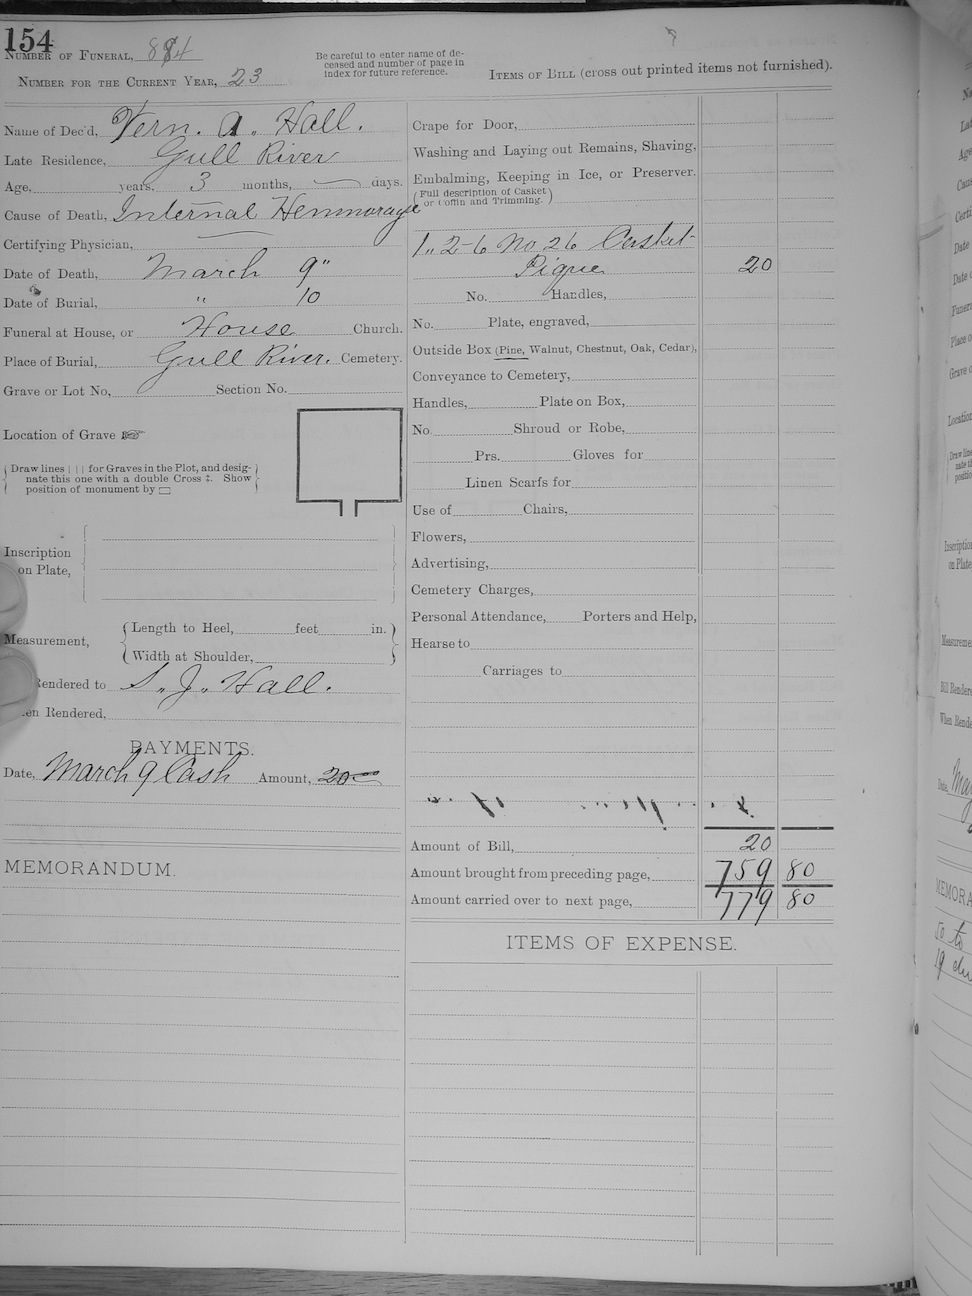 154
Number of Funeral, 884
Number for the Current Year, 23
Be careful to enter name of de-
ceased and number of page in
index for future reference.
Items of Bill (cross out printed items not furnished).
Name of Dec'd, Vern. A. Hall.
Late Residence, Gull River
Age, years, 3 months, — days.
Cause of Death, Internal Hemmorage
Certifying Physician,
Date of Death, March 9"
Date of Burial, " 10
Funeral at House, or House Church.
Place of Burial, Gull River. Cemetery.
Grave or Lot No, Section No.
Location of Grave ☞
Draw lines | | | for Graves in the Plot, and desig-
nate this one with a double Cross ‡. Show
position of monument by ▭
Inscription
on Plate,
Measurement,
Length to Heel, feet in.
Width at Shoulder,
Rendered to S. J. Hall.
en Rendered,
PAYMENTS.
Date, March 9 Cash Amount, 20
MEMORANDUM.
Crape for Door,
Washing and Laying out Remains, Shaving,
Embalming, Keeping in Ice, or Preserver.
(Full description of Casket
or Coffin and Trimming.)
1 " 2-6 No 26 Casket
Pique 20
No. Handles,
No. Plate, engraved,
Outside Box (Pine, Walnut, Chestnut, Oak, Cedar),
Conveyance to Cemetery,
Handles, Plate on Box,
No. Shroud or Robe,
Prs. Gloves for
Linen Scarfs for
Use of Chairs,
Flowers,
Advertising,
Cemetery Charges,
Personal Attendance, Porters and Help,
Hearse to
Carriages to
Amount of Bill, 20
Amount brought from preceding page, 759 80
Amount carried over to next page, 779 80
ITEMS OF EXPENSE.